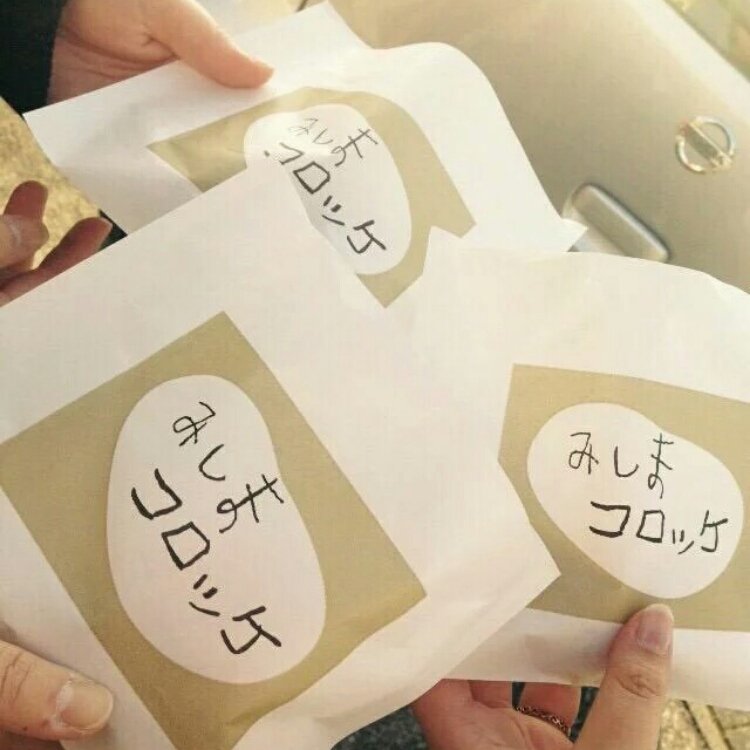 みしま
コロッケ
みしま
コロッケ
みしま
コロッケ